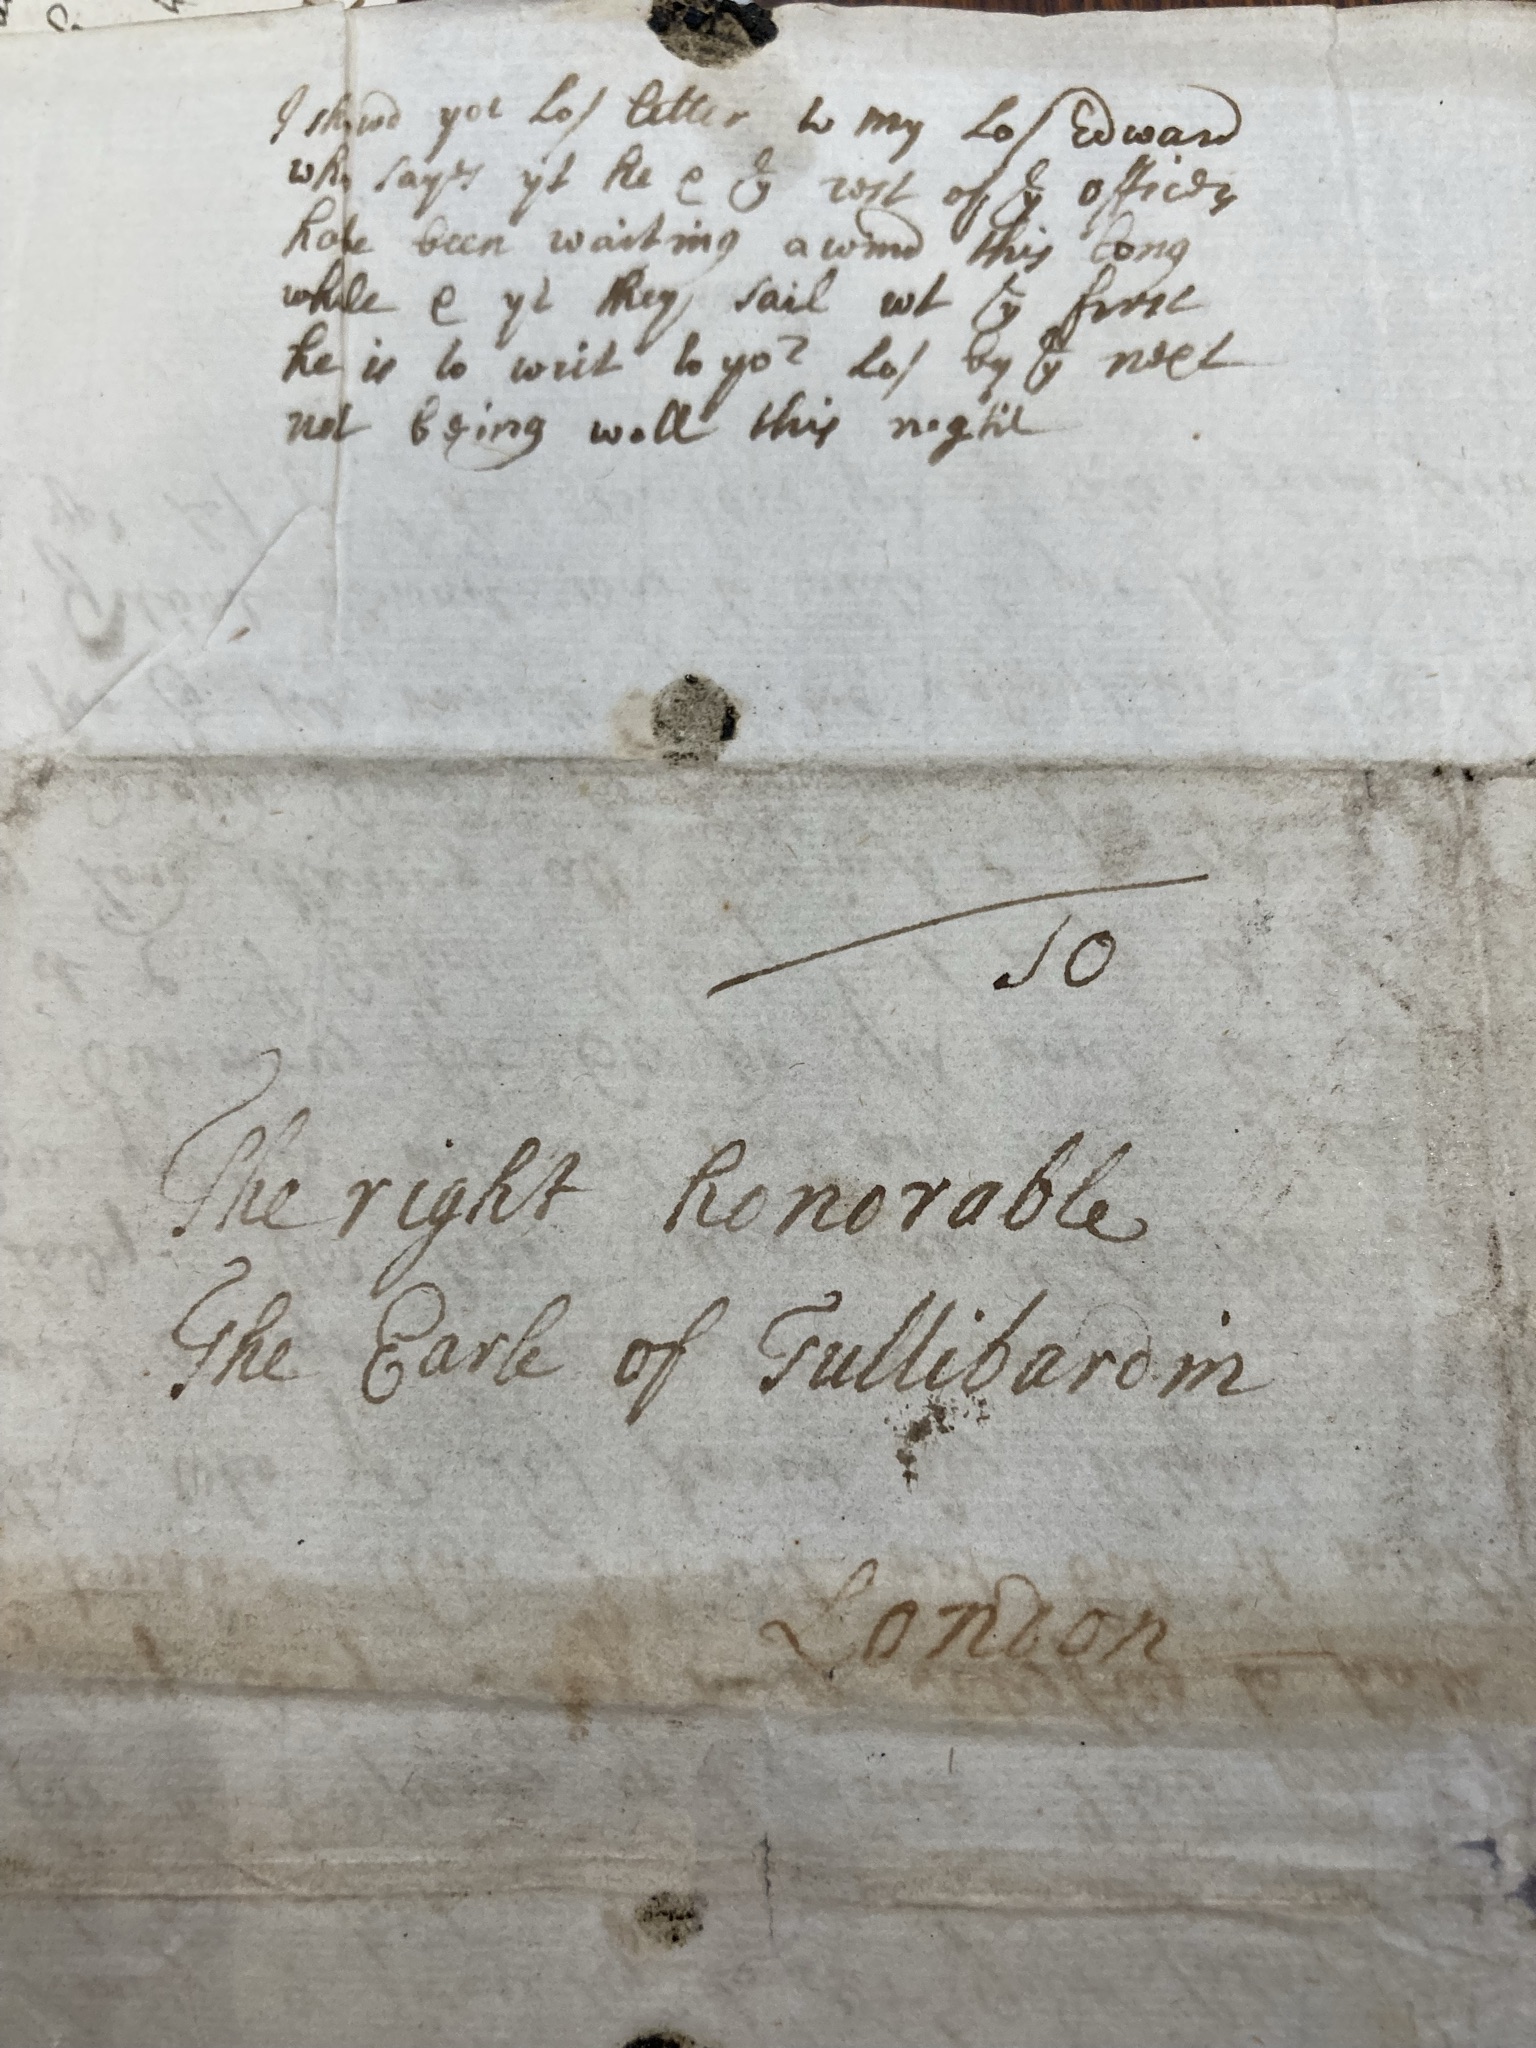 I shewd yor Lo/ letter to my Lo/ Edward
who says yt he & ye rest of ye officers
have been waiting a wind this long
while & yt they sail wt ye first
he is to writ to yor Lo/ by ye next
not being well this night
10
The right honorable
The Earle of Tullibardin
London